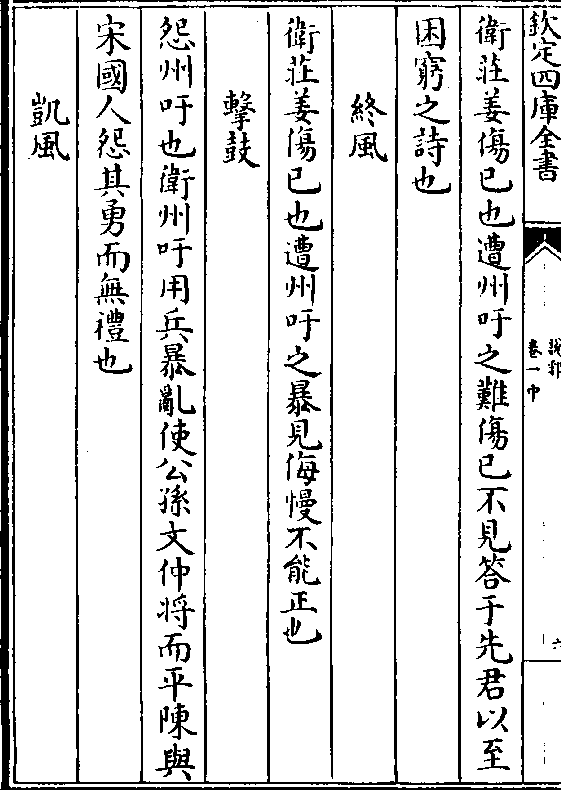 欽定四庫全書
說郛
卷一中
六
衛莊姜傷已也遭州吁之難傷已不見答于先君以至
困窮之詩也
終風
衛莊姜傷已也遭州吁之暴見侮慢不能正也
擊鼓
怨州吁也衛州吁用兵暴亂使公孫文仲將而平陳與
宋國人怨其勇而無禮也
凱風